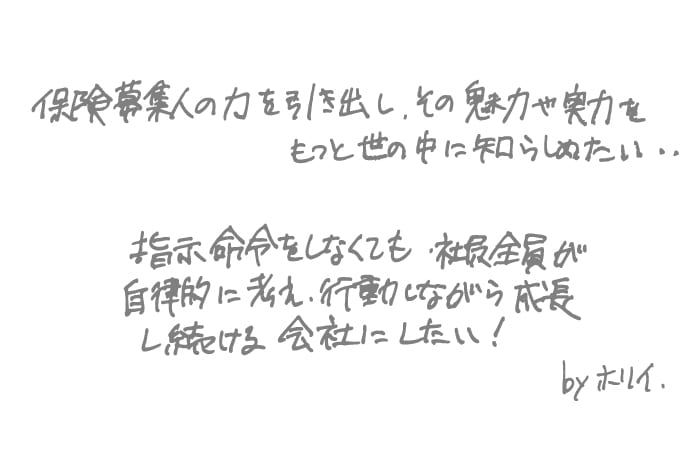 保険募集人の力を引き出し、その魅力や実力を
もっと世の中に知らしめたい‥
指示命令をしなくても、社員全員が
自律的に考え、行動しながら成長
し続ける会社にしたい！
by ホリイ.